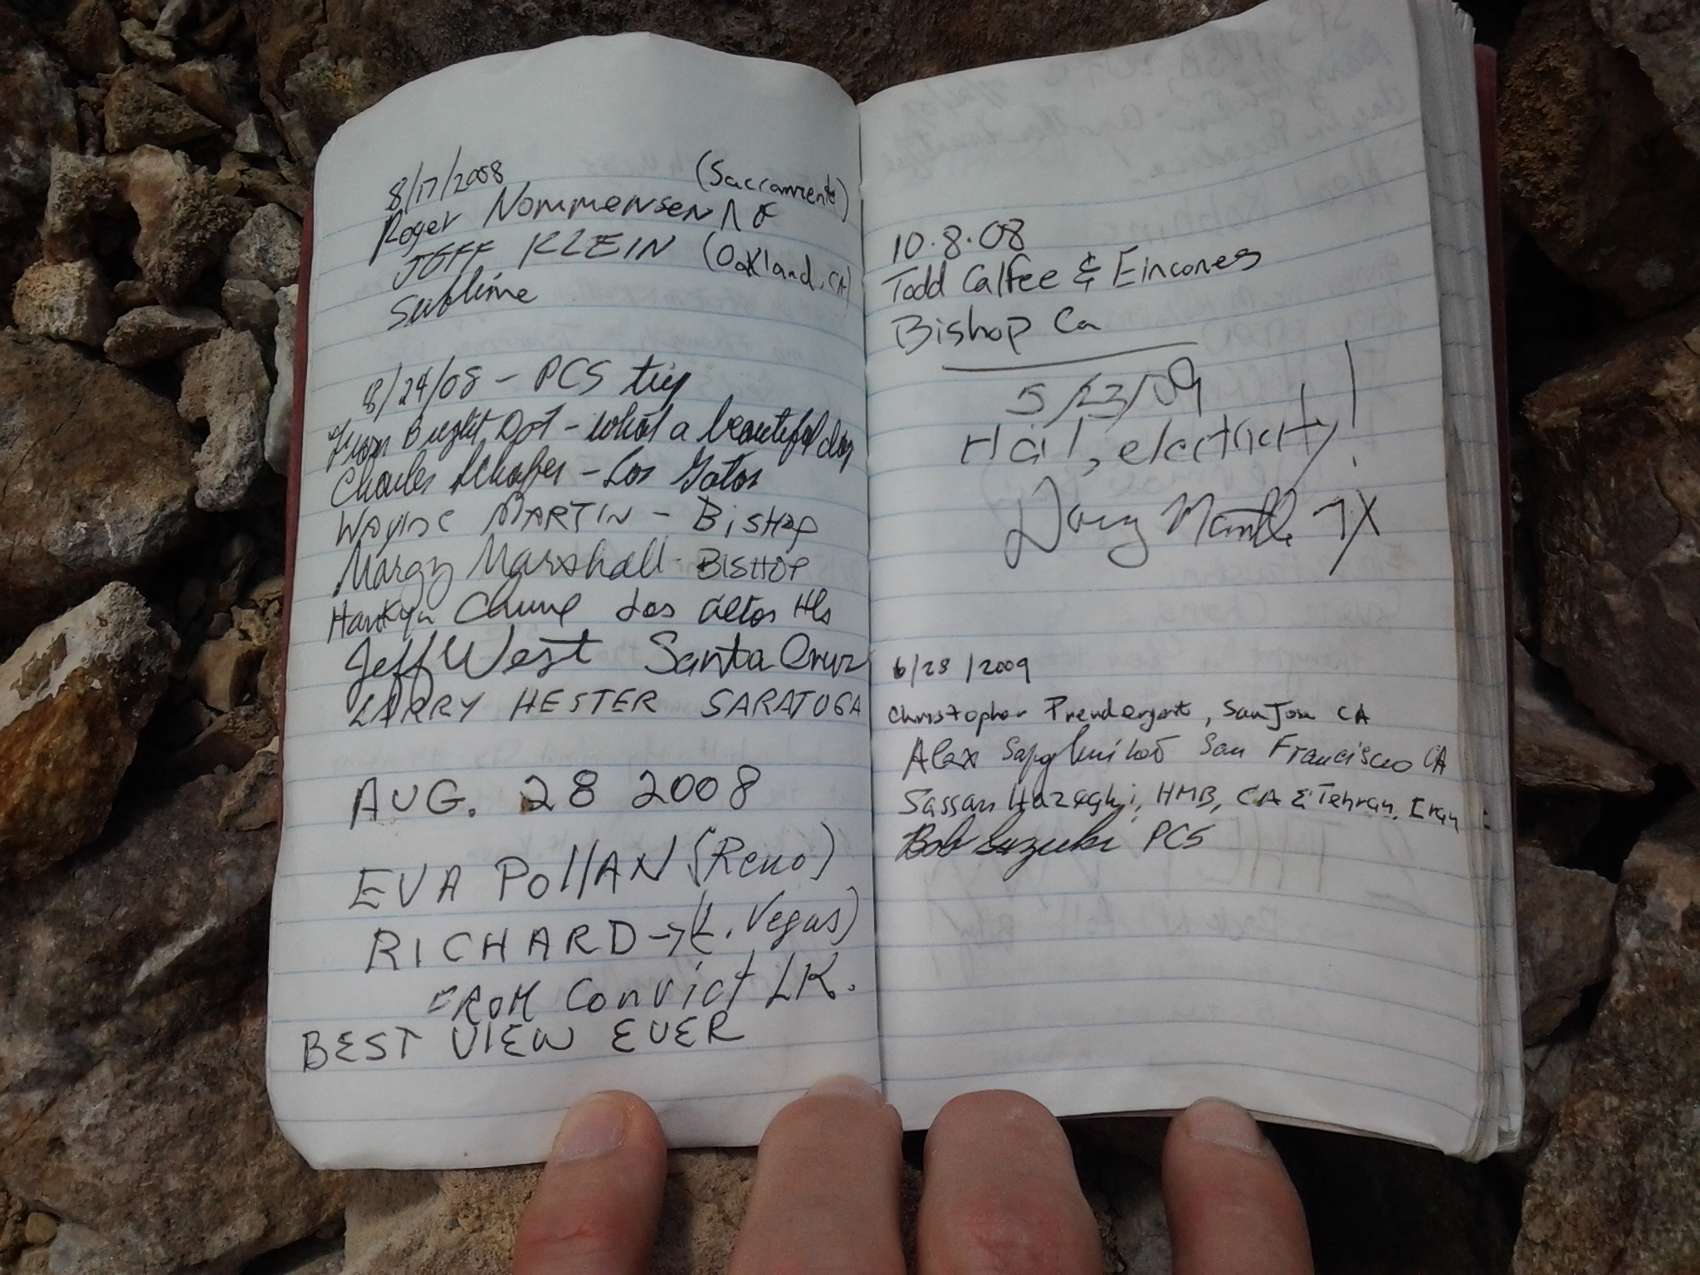 8/17/2008 (Sacramento)
Roger Nommensen
JEFF KLEIN (Oakland, CA)
Sublime
8/24/08 - PCS trip
From Bright Dot - what a beautiful day
Charles Schafer - Los Gatos
WAYNE MARTIN - BISHOP
Margy Marshall - BISHOP
Chung Los Altos Hls
Jeff West Santa Cruz
LARRY HESTER SARATOGA
AUG. 28 2008
EVA POLLAN (Reno)
RICHARD → (L. Vegas)
FROM Convict LK.
BEST VIEW EVER
10.8.08
Todd Calfee & Eincones
Bishop Ca
5/23/09
Hail, electricity!
Doug Mantle TX
6/28/2009
Christopher Prendergast, San Jose CA
Alex Sapozhnikov San Francisco CA
Sassan Hazeghi, HMB, CA & Tehran, Iran
Bob Suzuki PCS